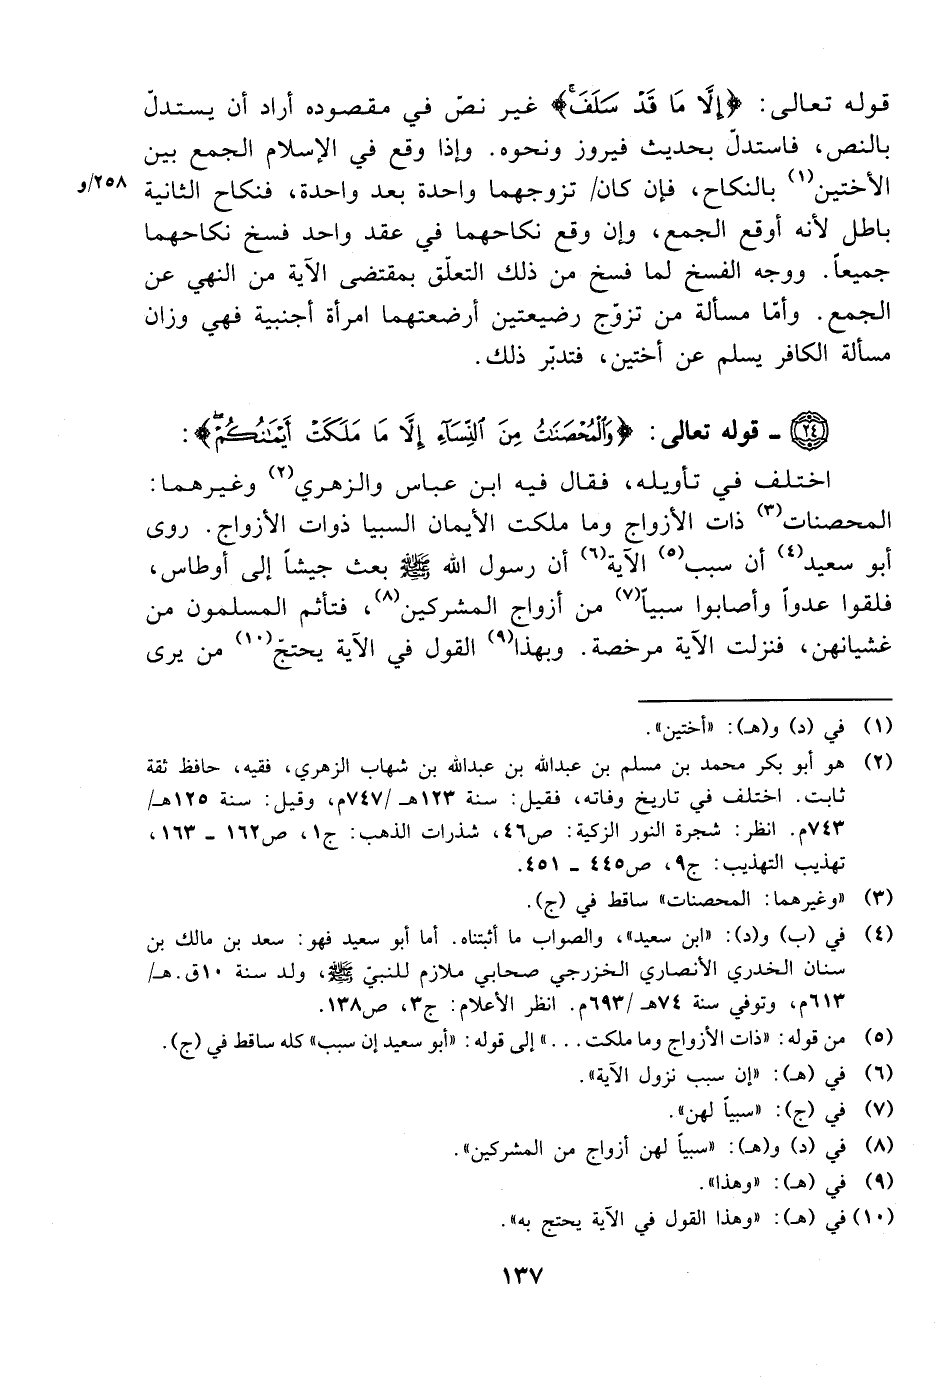 قوله تعالى: ﴿إِلَّا مَا قَدْ سَلَفَ﴾ غير نصّ في مقصوده أراد أن يستدلّ
بالنص، فاستدلّ بحديث فيروز ونحوه. وإذا وقع في الإسلام الجمع بين
الأختين(١) بالنكاح، فإن كان/ تزوجهما واحدة بعد واحدة، فنكاح الثانية ٢٥٨/و
باطل لأنه أوقع الجمع، وإن وقع نكاحهما في عقد واحد فسخ نكاحهما
جميعاً. ووجه الفسخ لما فسخ من ذلك التعلّق بمقتضى الآية من النهي عن
الجمع. وأمّا مسألة من تزوّج رضيعتين أرضعتهما امرأة أجنبية فهي وزان
مسألة الكافر يسلم عن أختين، فتدبّر ذلك.
(٢٤) ـ قوله تعالى: ﴿وَالْمُحْصَنَاتُ مِنَ النِّسَاءِ إِلَّا مَا مَلَكَتْ أَيْمَانُكُمْ﴾:
اختلف في تأويله، فقال فيه ابن عباس والزهري(٢) وغيرهما:
المحصنات(٣) ذات الأزواج وما ملكت الأيمان السبيا ذوات الأزواج. روى
أبو سعيد(٤) أن سبب(٥) الآية(٦) أن رسول الله ﷺ بعث جيشاً إلى أوطاس،
فلقوا عدواً وأصابوا سبياً(٧) من أزواج المشركين(٨)، فتأثم المسلمون من
غشيانهن، فنزلت الآية مرخصة. وبهذا(٩) القول في الآية يحتجّ(١٠) من يرى
(١) في (د) و(هـ): «أختين».
(٢) هو أبو بكر محمد بن مسلم بن عبدالله بن عبدالله بن شهاب الزهري، فقيه، حافظ ثقة
ثابت. اختلف في تاريخ وفاته، فقيل: سنة ١٢٣هـ/٧٤٧م، وقيل: سنة ١٢٥هـ/
٧٤٣م. انظر: شجرة النور الزكية: ص٤٦، شذرات الذهب: ج١، ص١٦٢ ـ ١٦٣،
تهذيب التهذيب: ج٩، ص٤٤٥ ـ ٤٥١.
(٣) «وغيرهما: المحصنات» ساقط في (ج).
(٤) في (ب) و(د): «ابن سعيد»، والصواب ما أثبتناه. أما أبو سعيد فهو: سعد بن مالك بن
سنان الخدري الأنصاري الخزرجي صحابي ملازم للنبيّ ﷺ، ولد سنة ١٠ق.هـ/
٦١٣م، وتوفي سنة ٧٤هـ/٦٩٣م. انظر الأعلام: ج٣، ص١٣٨.
(٥) من قوله: «ذات الأزواج وما ملكت...» إلى قوله: «أبو سعيد إن سبب» كله ساقط في (ج).
(٦) في (هـ): «إن سبب نزول الآية».
(٧) في (ج): «سبياً لهن».
(٨) في (د) و(هـ): «سبياً لهن أزواج من المشركين».
(٩) في (هـ): «وهذا».
(١٠) في (هـ): «وهذا القول في الآية يحتج به».
١٣٧